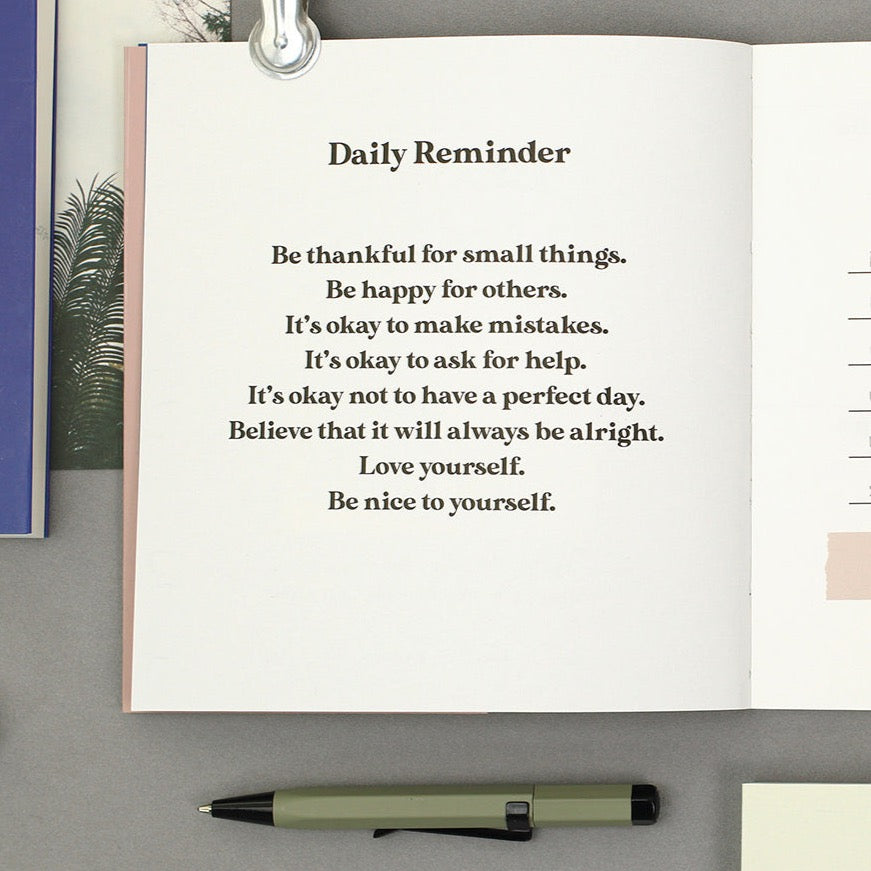 Daily Reminder
Be thankful for small things.
Be happy for others.
It's okay to make mistakes.
It's okay to ask for help.
It's okay not to have a perfect day.
Believe that it will always be alright.
Love yourself.
Be nice to yourself.